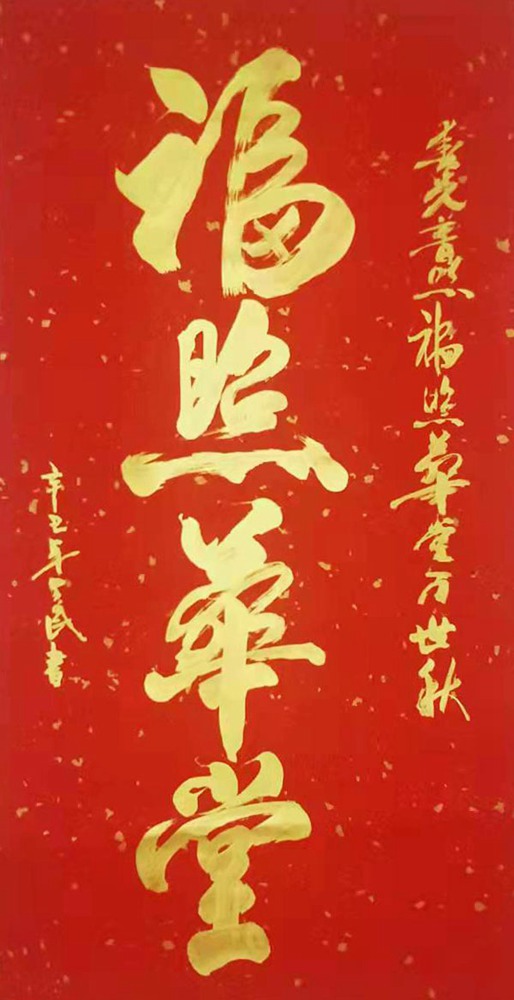 光普照福照華堂万世秋
福照華堂
辛丑年民書